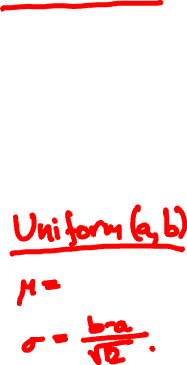 Uniform (a, b)
μ =
σ = b-a/√12.